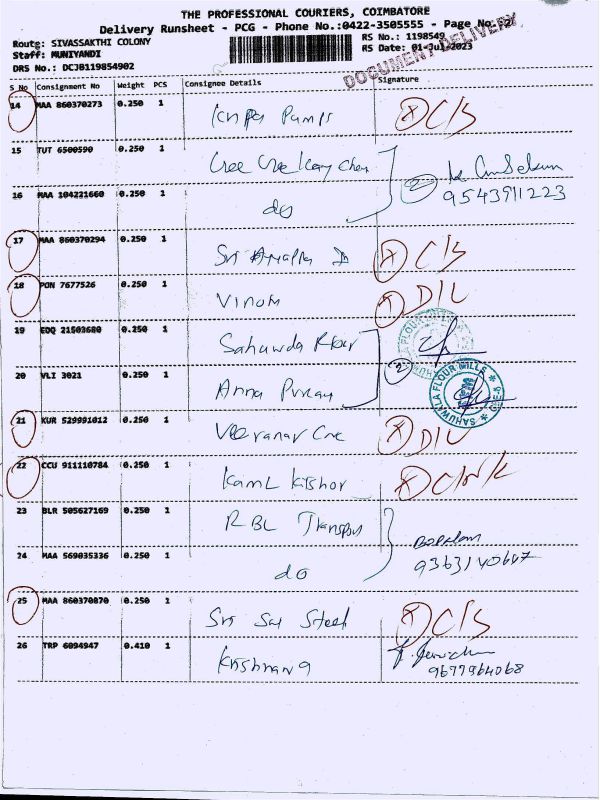 THE PROFESSIONAL COURIERS, COIMBATORE
Delivery Runsheet - PCG - Phone No.:0422-3505555 - Page No. 2
Route: SIVASSAKTHI COLONY
RS No.: 1198549
Staff: MUNIYANDI
RS Date: 01-Jul-2023
DRS No.: DCJB119854902
DOCUMENT DELIVERY
S No Consignment No Weight PCS Consignee Details Signature
14 MAA 860370273 0.250 1 Pumps C/S
15 TUT 6500590 0.250 1
16 MAA 104221660 0.250 1 do 2 9543911223
17 MAA 860370294 0.250 1 Sri C/S
18 PON 7677526 0.250 1 Vinoth D/L
19 EDQ 21503680 0.250 1
20 VLI 3021 0.250 1 Anna 2
SAHUWALA FLOUR MILLS
21 KUR 529991012 0.250 1 D/L
22 CCU 911110784 0.250 1 Kamal Kishor
23 BLR 505627169 0.250 1 RBL Transport
24 MAA 569035336 0.250 1 do
25 MAA 860370870 0.250 1 Sri Sai Steel C/S
26 TRP 6094947 0.410 1 9677964068